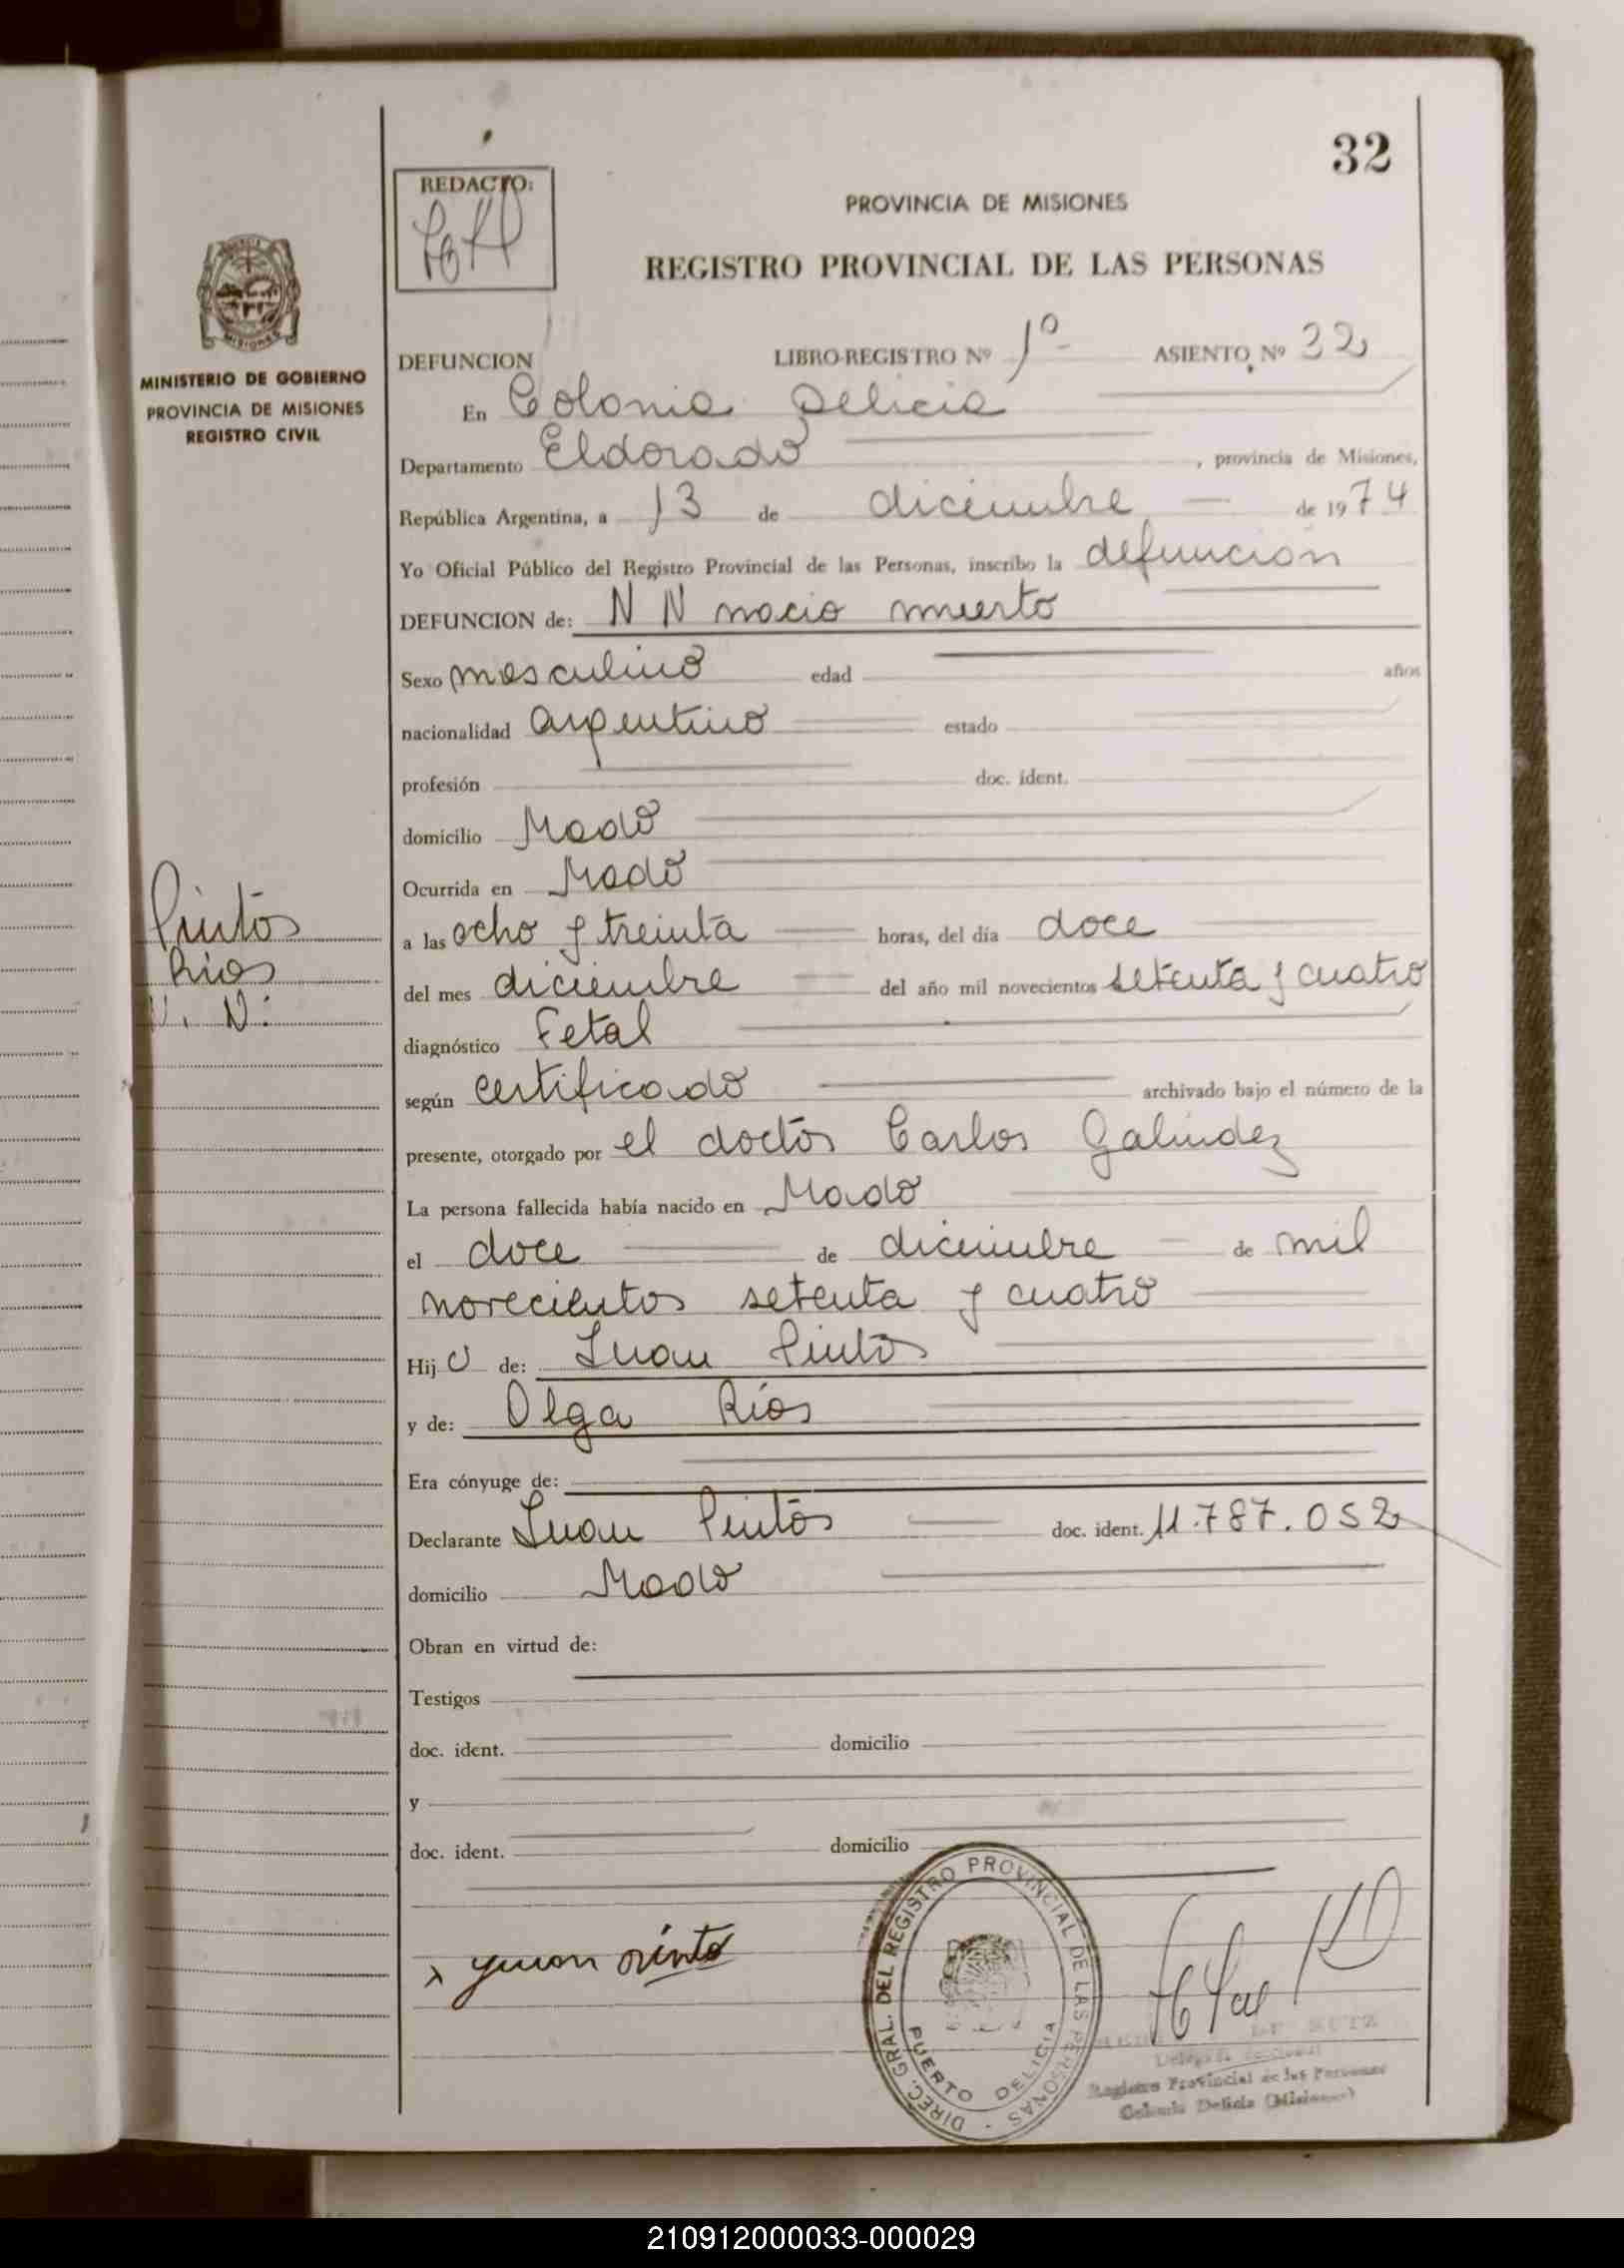 32
REDACTO:
PROVINCIA DE MISIONES
REGISTRO PROVINCIAL DE LAS PERSONAS
MINISTERIO DE GOBIERNO
PROVINCIA DE MISIONES
REGISTRO CIVIL
DEFUNCION LIBRO-REGISTRO Nº 1º ASIENTO Nº 32
En Colonia Delicia
Departamento Eldorado, provincia de Misiones,
República Argentina, a 13 de diciembre de 1974
Yo Oficial Público del Registro Provincial de las Personas, inscribo la defuncion
DEFUNCION de: N N nacio muerto
Sexo masculino edad años
nacionalidad argentino estado
profesión doc. ident.
domicilio Mado
Ocurrida en Mado
a las ocho y treinta horas, del día doce
del mes diciembre del año mil novecientos setenta y cuatro
diagnóstico Fetal
según certificado archivado bajo el número de la
presente, otorgado por el doctor Carlos Galindez
La persona fallecida había nacido en Mado
el doce de diciembre de mil
novecientos setenta y cuatro
Hijo de: Juan Pinto
y de: Olga Ríos
Era cónyuge de:
Declarante Juan Pinto doc. ident. 11.787.052
domicilio Mado
Obran en virtud de:
Testigos
doc. ident. domicilio
y
doc. ident. domicilio
Pintos
Rios
N. N.
DIREC. GRAL. DEL REGISTRO PROVINCIAL DE LAS PERSONAS
PUERTO DELICIA
Registro Provincial de las Personas
Colonia Delicia (Misiones)
210912000033-000029